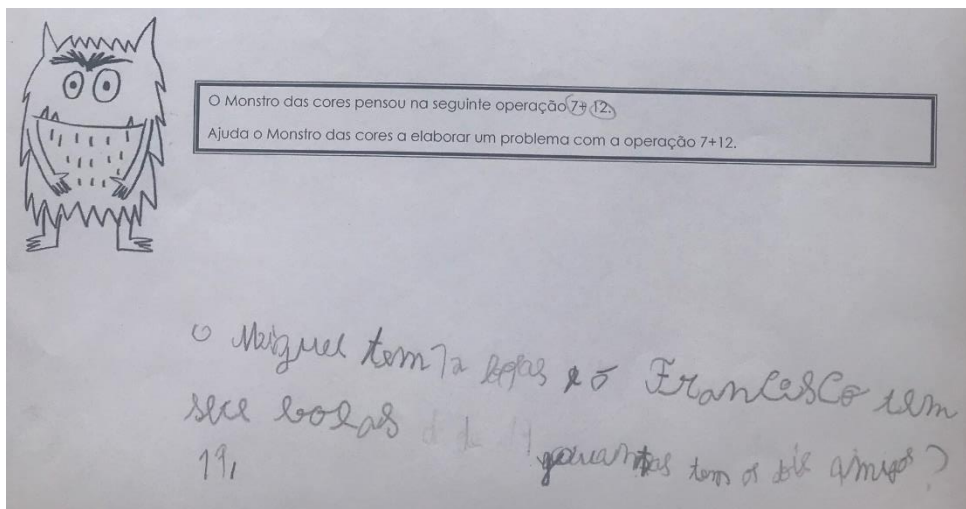 O Monstro das cores pensou na seguinte operação 7+ 12.
Ajuda o Monstro das cores a elaborar um problema com a operação 7+12.
O Maiguel tem 12 bolas e o Francisco tem
sete bolas quantas tem os dois amigos?
19,